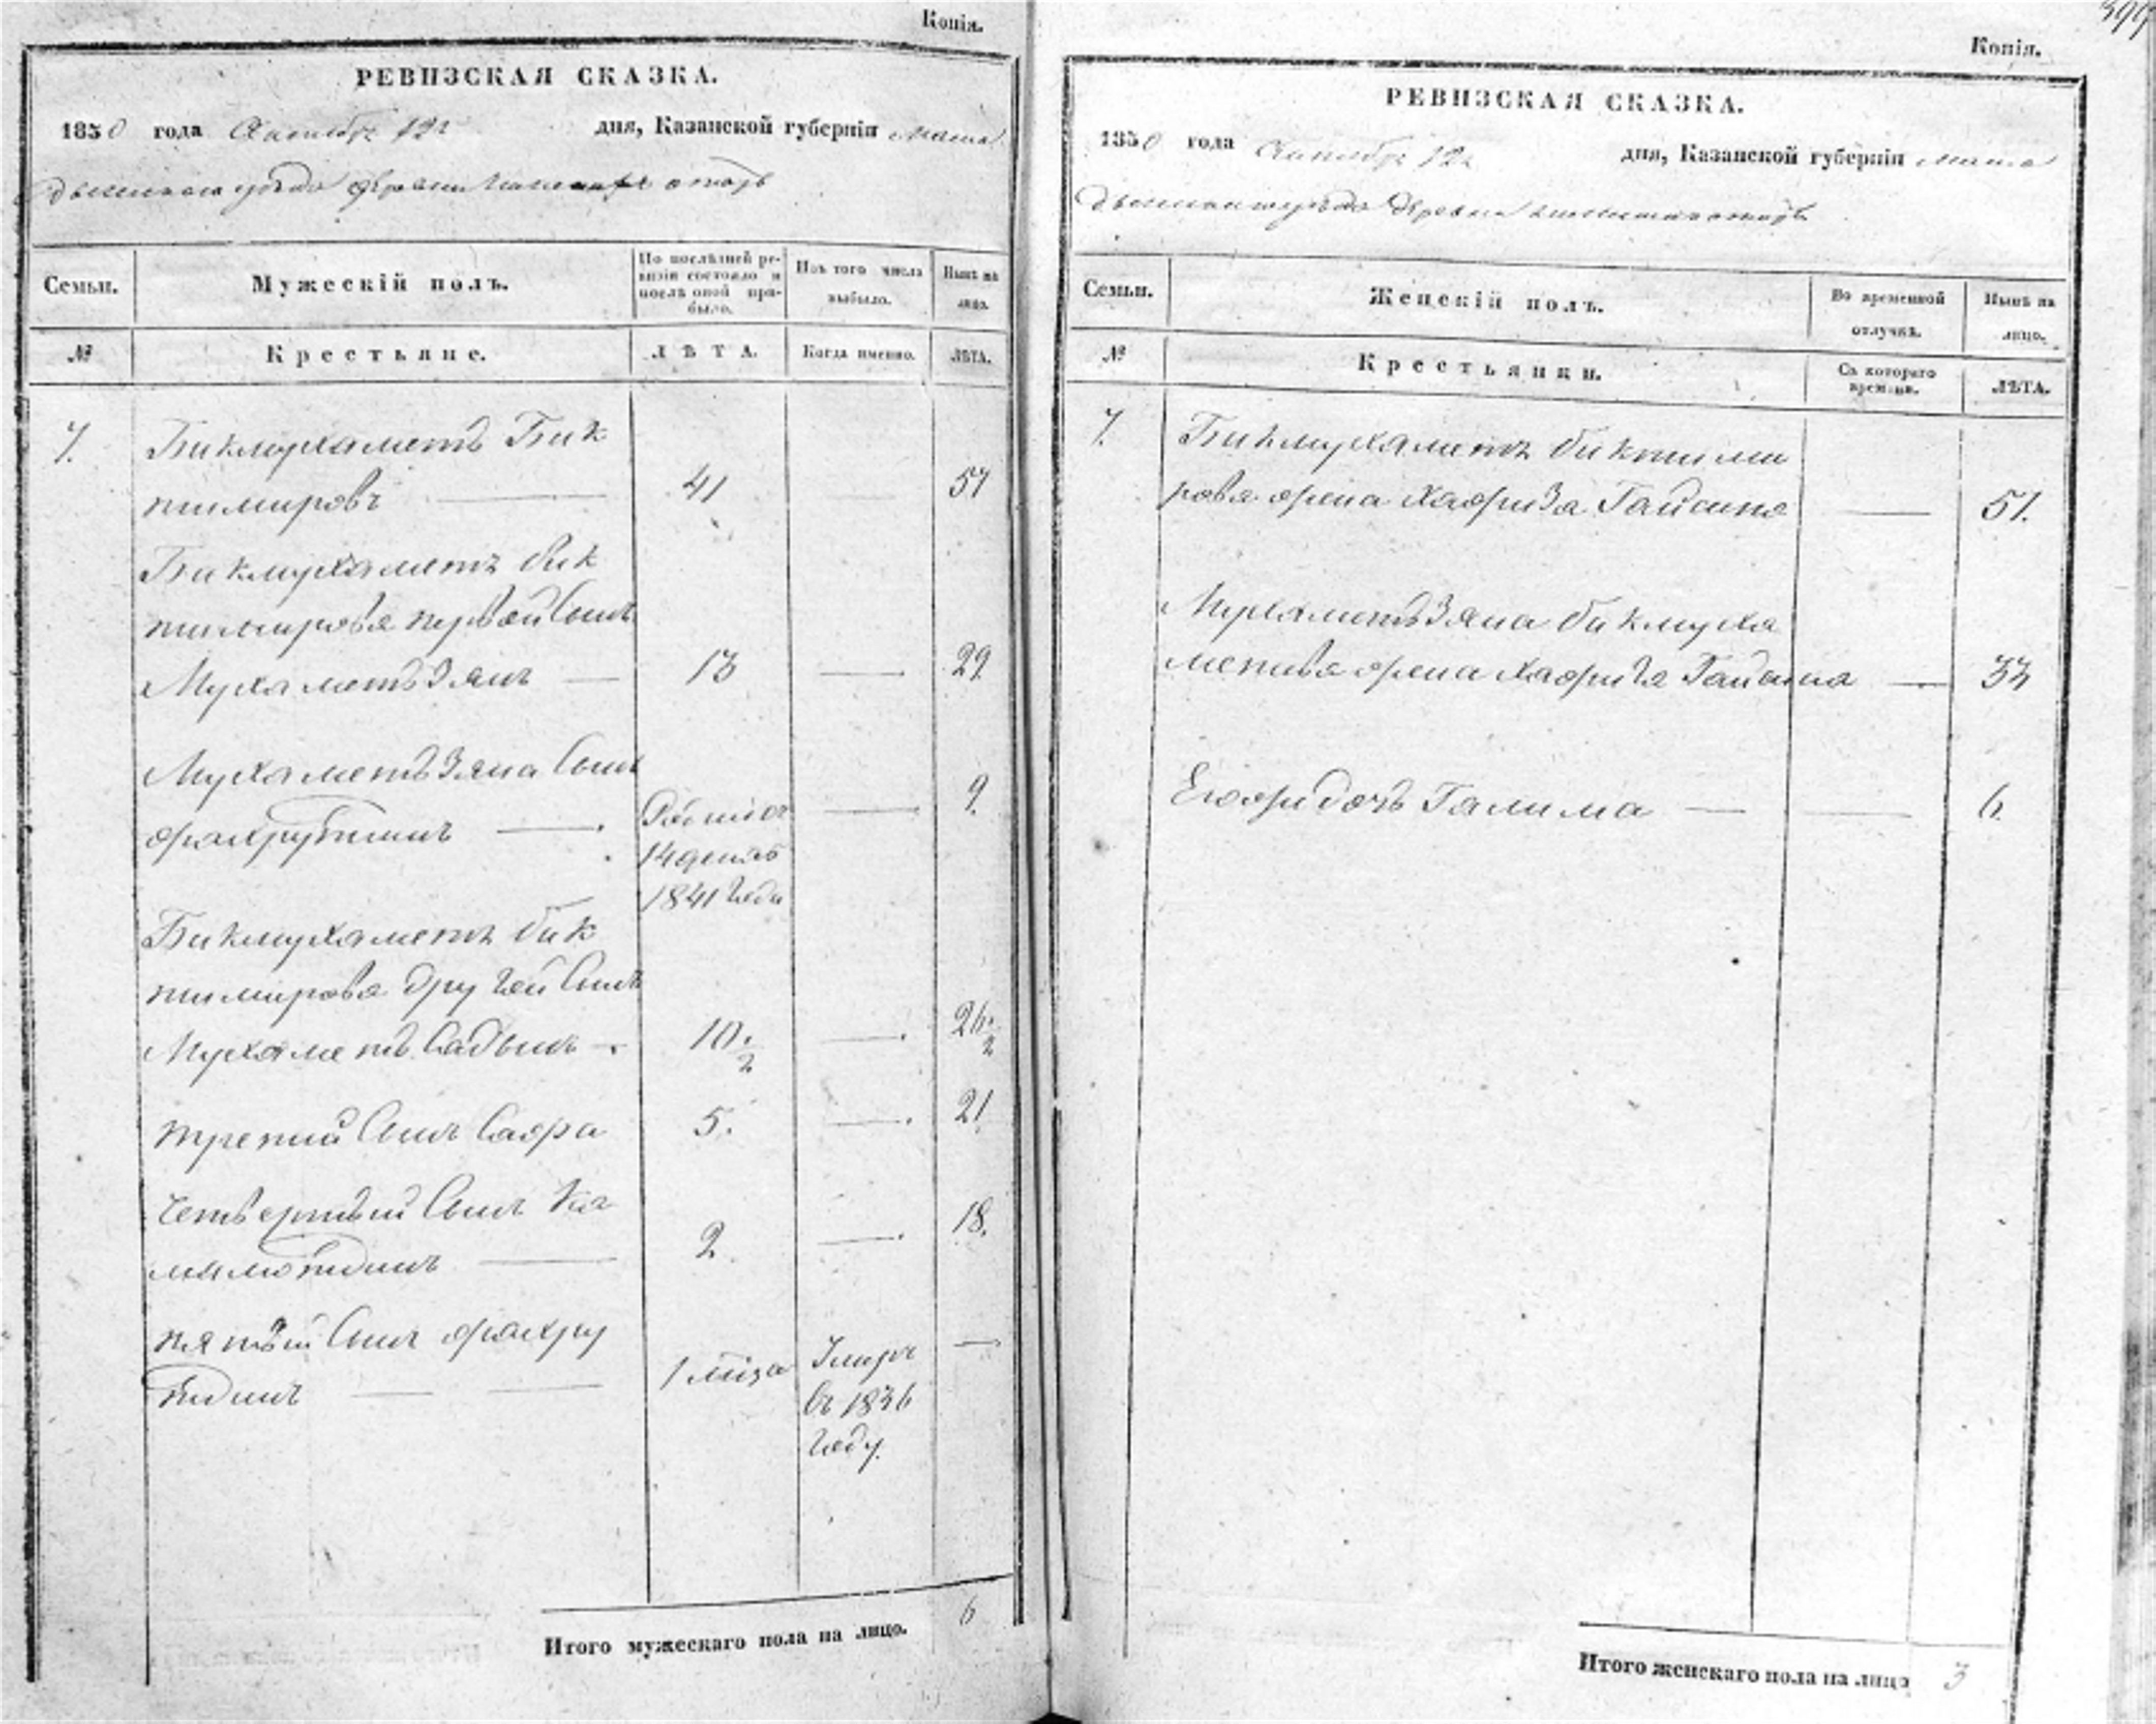 Копія.
РЕВИЗСКАЯ СКАЗКА.
1850 года Октября 12 дня, Казанской губерніи мама
дышскаго уѣзда деревни
Семьи.
Мужескій полъ.
По послѣдней ре-
визіи состояло и
послѣ оной при-
было.
Изъ того числа
выбыло.
Нынѣ на
лицо.
№
Крестьяне.
ЛѢТА.
Когда именно.
ЛѢТА.
7.
Бикмухаметъ Бик
тимировъ 41 57
Бикмухаметъ бик
тимирова первой Сынъ
Мухаметъ Зянъ 13 29
Мухаметъ Зяна Сынъ 9.
фахрутинъ
14
1841 года
Бикмухаметъ бик
тимирова другой Сынъ
Мухаметъ Садыкъ 10 1/2 26 1/2
третій Сынъ Сафа 5. 21
Четвертый Сынъ Ка
малютдинъ 2 18.
пятый Сынъ фахру
тдинъ 1 мѣсяца Умеръ
въ 1836
году.
Итого мужескаго пола на лицо. 6
399
Копія.
РЕВИЗСКАЯ СКАЗКА.
1850 года Октября 12 дня, Казанской губерніи мама
дышскаго уѣзда деревни
Семьи.
Женскій полъ.
Во временной
отлучкѣ.
Нынѣ на
лицо.
№
Крестьянки.
Съ котораго
времени.
ЛѢТА.
7.
Бикмухаметъ биктими
рова жена Хафиза Гайсина 51.
Мухаметъ Зяна бикмуха
метева жена Гайсина 33
Егожъ дочь Галима 6.
Итого женскаго пола на лицо 3